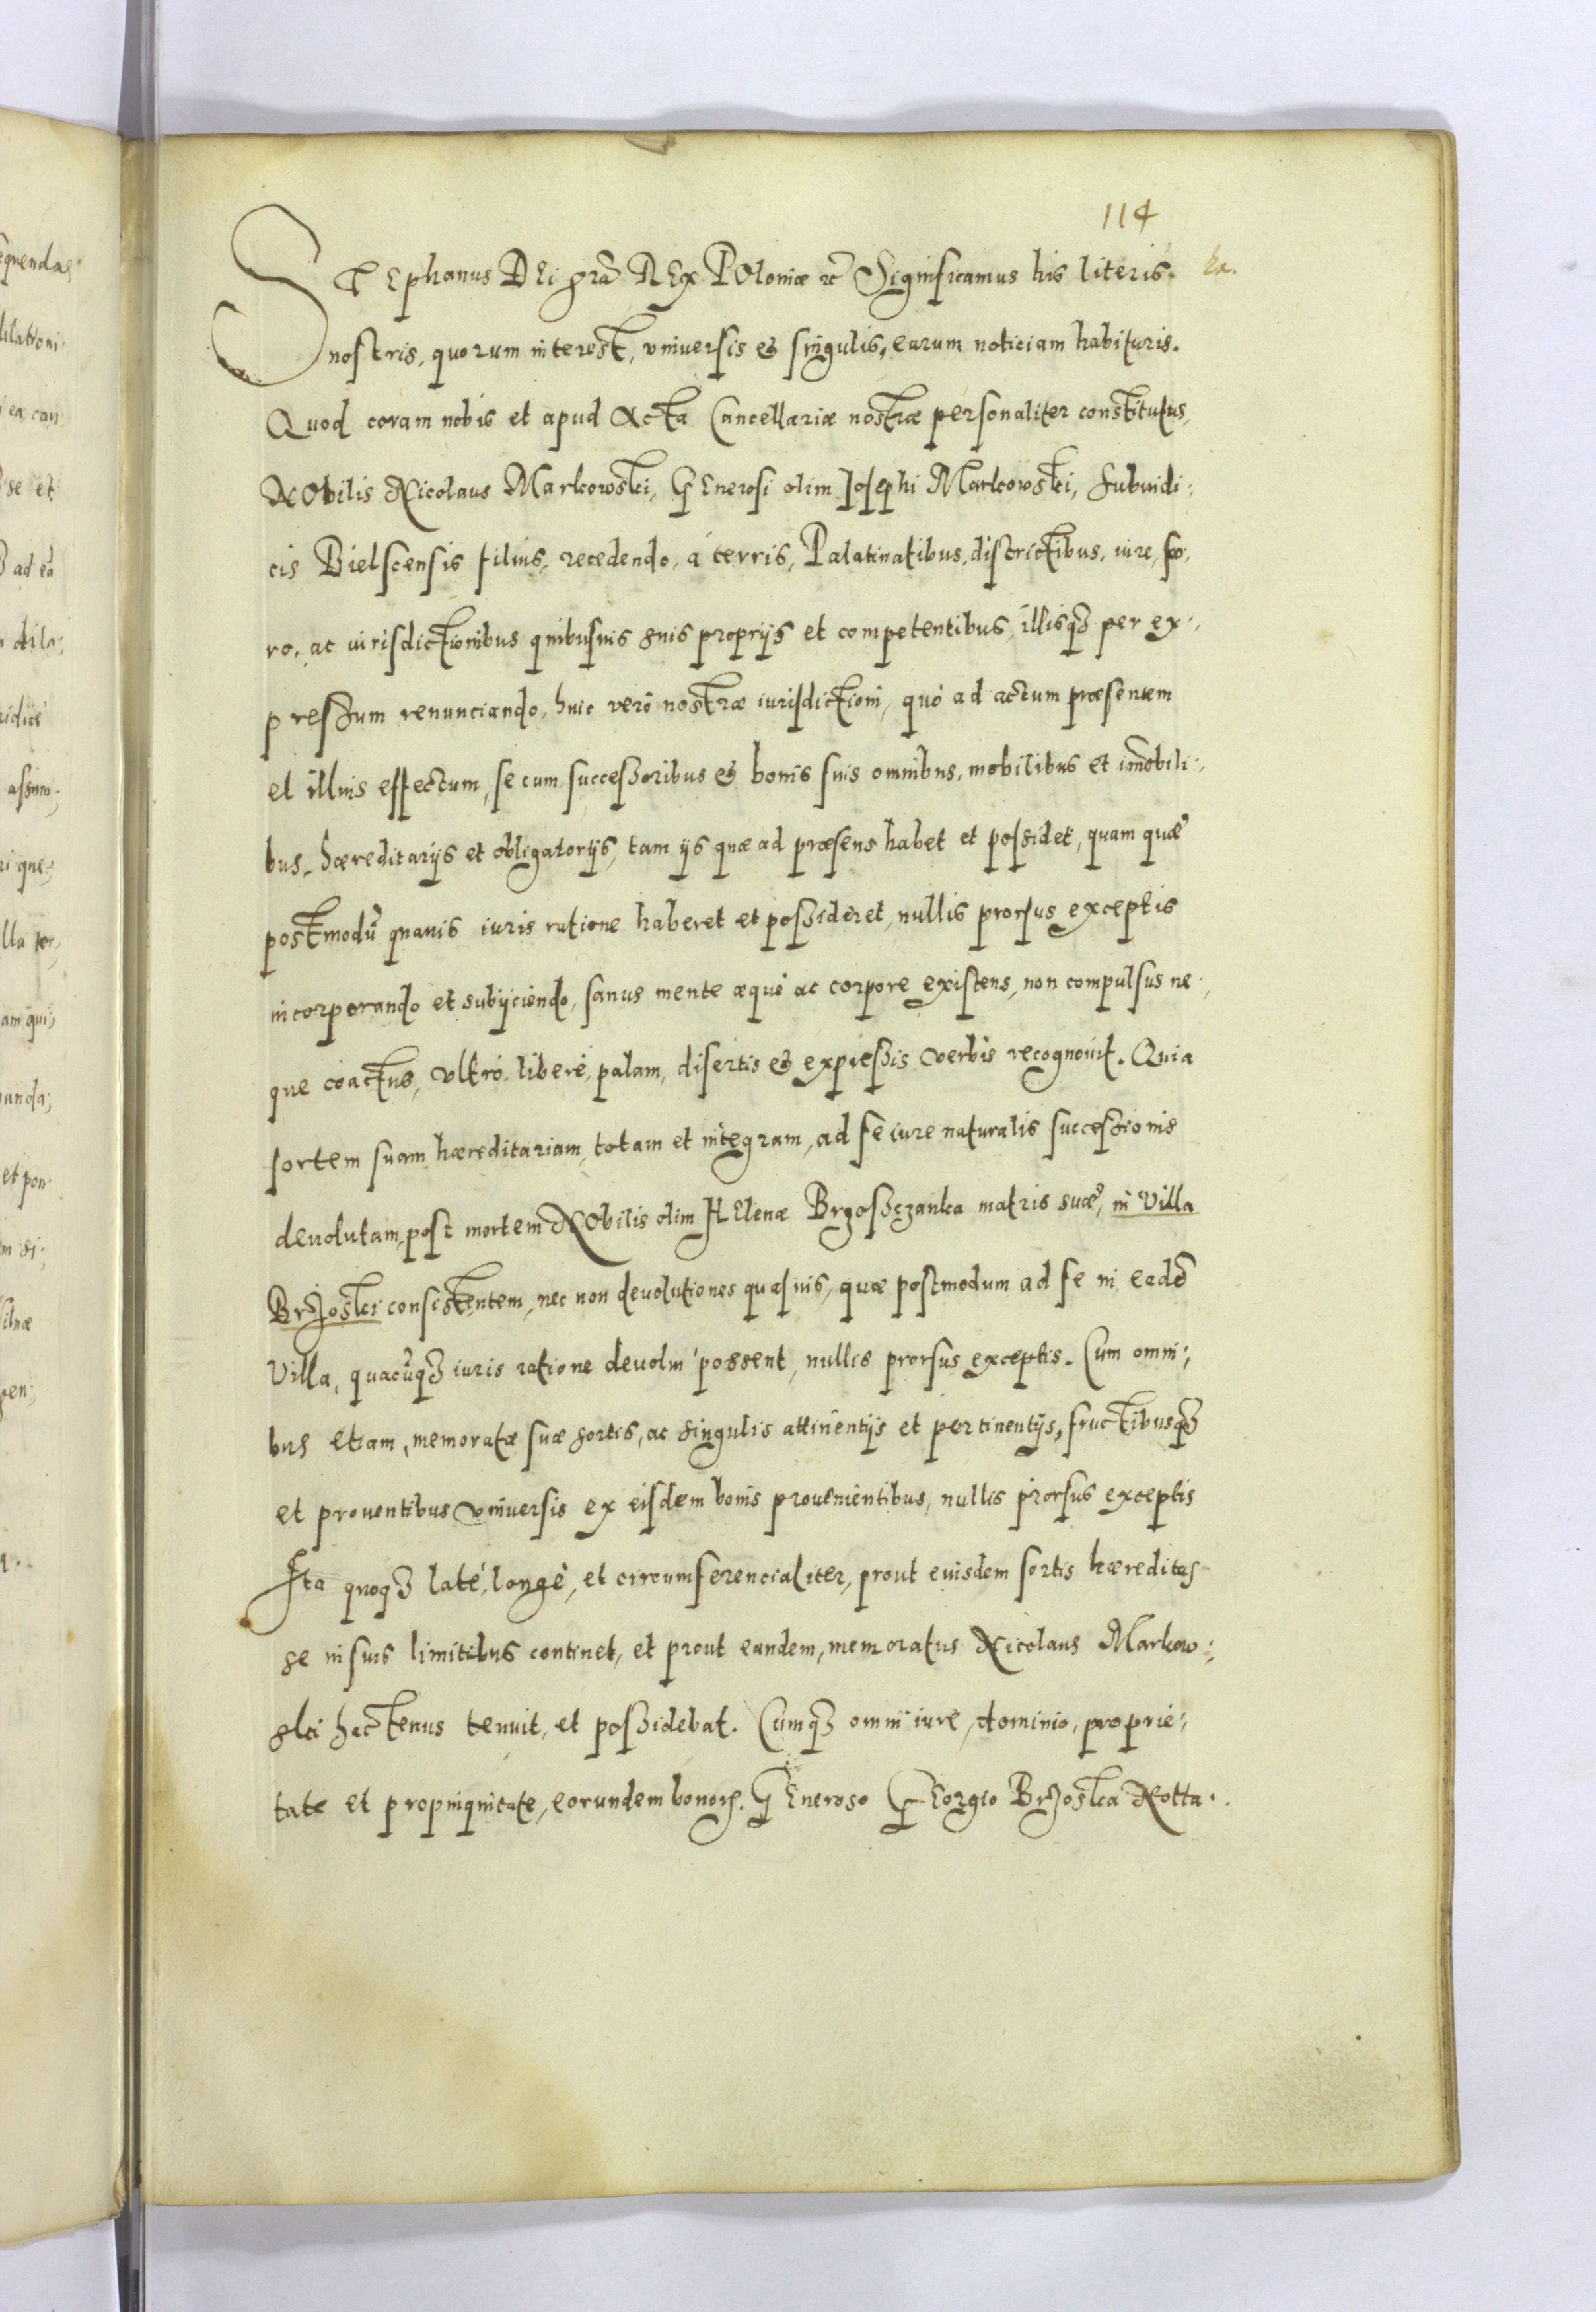 114
STEphanus DEi grã REx POloniæ &c Significamus his literis.
nostris, quorum interest, vniuersis & singulis, earum noticiam habituris.
Quod coram nobis et apud Acta Cancellariæ nostræ personaliter constitutus,
NObilis Nicolaus Markowski, GEnerosi olim Josephi Markowski, Subiudi:
cis Bielscensis filius, recedendo, á terris, Palatinatibus, districtibus, iure, fo,
ro, ac iurisdictionibus quibusuis suis proprijs et competentibus, illisqꝫ per ex.,
pressum renunciando, huic veró nostræ iurisdictioni, quó ad actum præsentem
et illius effectum, se cum successoribus & bonis suis omnibus, mobilibus et im̃obili.,
bus, hæreditarijs et obligatorijs, tam ijs quæ ad præsens habet et possidet, quam quæ
postmodũ quauis iuris ratione haberet et possideret, nullis prorsus exceptis
incorporando et subijciendo, sanus mente æquè ac corpore existens, non compulsus ne.,
que coactus, vltró, liberè, palam, disertis & expressis verbis recognouit. Quia
sortem suam hæreditariam, totam et integram, ad se iure naturalis successionis
deuolutam, post mortem NObilis olim HElenæ Brzosczanka matris suæ, in Villa
Brzoski consistentem, nec non deuolutiones quasuis, quæ postmodum ad se in eadẽ
Villa, quacũqꝫ iuris ratione deuolui possent, nullis prorsus exceptis. Cum omni:,
bus etiam, memoratæ suæ sortis, ac singulis attinentijs et pertinentijs, fructibusqꝫ
et prouentibus vniuersis ex eisdem bonis prouenientibus, nullis prorsus exceptis
Ita quoqꝫ latè, longè, et circumferencialiter, prout euisdem sortis hæreditas
se in suis limitibus continet, et prout eandem, memoratus Nicolaus Markow:,
ski hactenus tenuit, et possidebat. Cumqꝫ omni iure, dominio, proprie:,
tate et propinquitate, eorundem bonorꝫ. GEneroso GEorgio Brzoska Notta.,